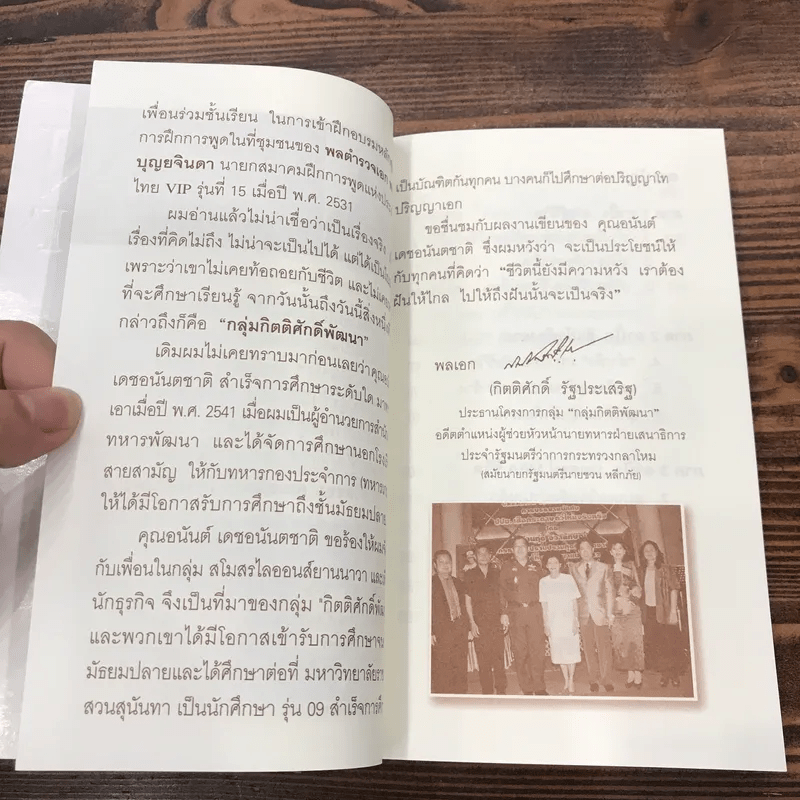 เพื่อนร่วมชั้นเรียน ในการเข้าฝึกอบรมหลัก
การฝึกการพูดในที่ชุมชนของ พลตำรวจเอก
บุญยจินดา นายกสมาคมฝึกการพูดแห่งประ
ไทย VIP รุ่นที่ 15 เมื่อปี พ.ศ. 2531
ผมอ่านแล้วไม่น่าเชื่อว่าเป็นเรื่องจริง
เรื่องที่คิดไม่ถึง ไม่น่าจะเป็นไปได้ แต่ได้เป็น
เพราะว่าเขาไม่เคยท้อถอยกับชีวิต และไม่เคย
ที่จะศึกษาเรียนรู้ จากวันนั้นถึงวันนี้สิ่งหนึ่ง
กล่าวถึงก็คือ “กลุ่มกิตติศักดิ์พัฒนา”
เดิมผมไม่เคยทราบมาก่อนเลยว่าคุณ
เดชอนันตชาติ สำเร็จการศึกษาระดับใด มา
เอาเมื่อปี พ.ศ. 2541 เมื่อผมเป็นผู้อำนวยการสำนัก
ทหารพัฒนา และได้จัดการศึกษานอกโรง
สายสามัญ ให้กับทหารกองประจำการ (ทหาร
ให้ได้มีโอกาสรับการศึกษาถึงชั้นมัธยมปลาย
คุณอนันต์ เดชอนันตชาติ ขอร้องให้ผม
กับเพื่อนในกลุ่ม สโมสรไลออนส์ยานนาวา และ
นักธุรกิจ จึงเป็นที่มาของกลุ่ม “กิตติศักดิ์พัฒ
และพวกเขาได้มีโอกาสเข้ารับการศึกษาจน
มัธยมปลายและได้ศึกษาต่อที่ มหาวิทยาลัยรา
สวนสุนันทา เป็นนักศึกษา รุ่น 09 สำเร็จการศึ
เป็นบัณฑิตกันทุกคน บางคนก็ไปศึกษาต่อปริญญาโท
ปริญญาเอก
ขอชื่นชมกับผลงานเขียนของ คุณอนันต์
เดชอนันตชาติ ซึ่งผมหวังว่า จะเป็นประโยชน์ให้
กับทุกคนที่คิดว่า “ชีวิตนี้ยังมีความหวัง เราต้อง
ฝันให้ไกล ไปให้ถึงฝันนั้นจะเป็นจริง”
พลเอก
(กิตติศักดิ์ รัฐประเสริฐ)
ประธานโครงการกลุ่ม “กลุ่มกิตติพัฒนา”
อดีตตำแหน่งผู้ช่วยหัวหน้านายทหารฝ่ายเสนาธิการ
ประจำรัฐมนตรีว่าการกระทรวงกลาโหม
(สมัยนายกรัฐมนตรีนายชวน หลีกภัย)